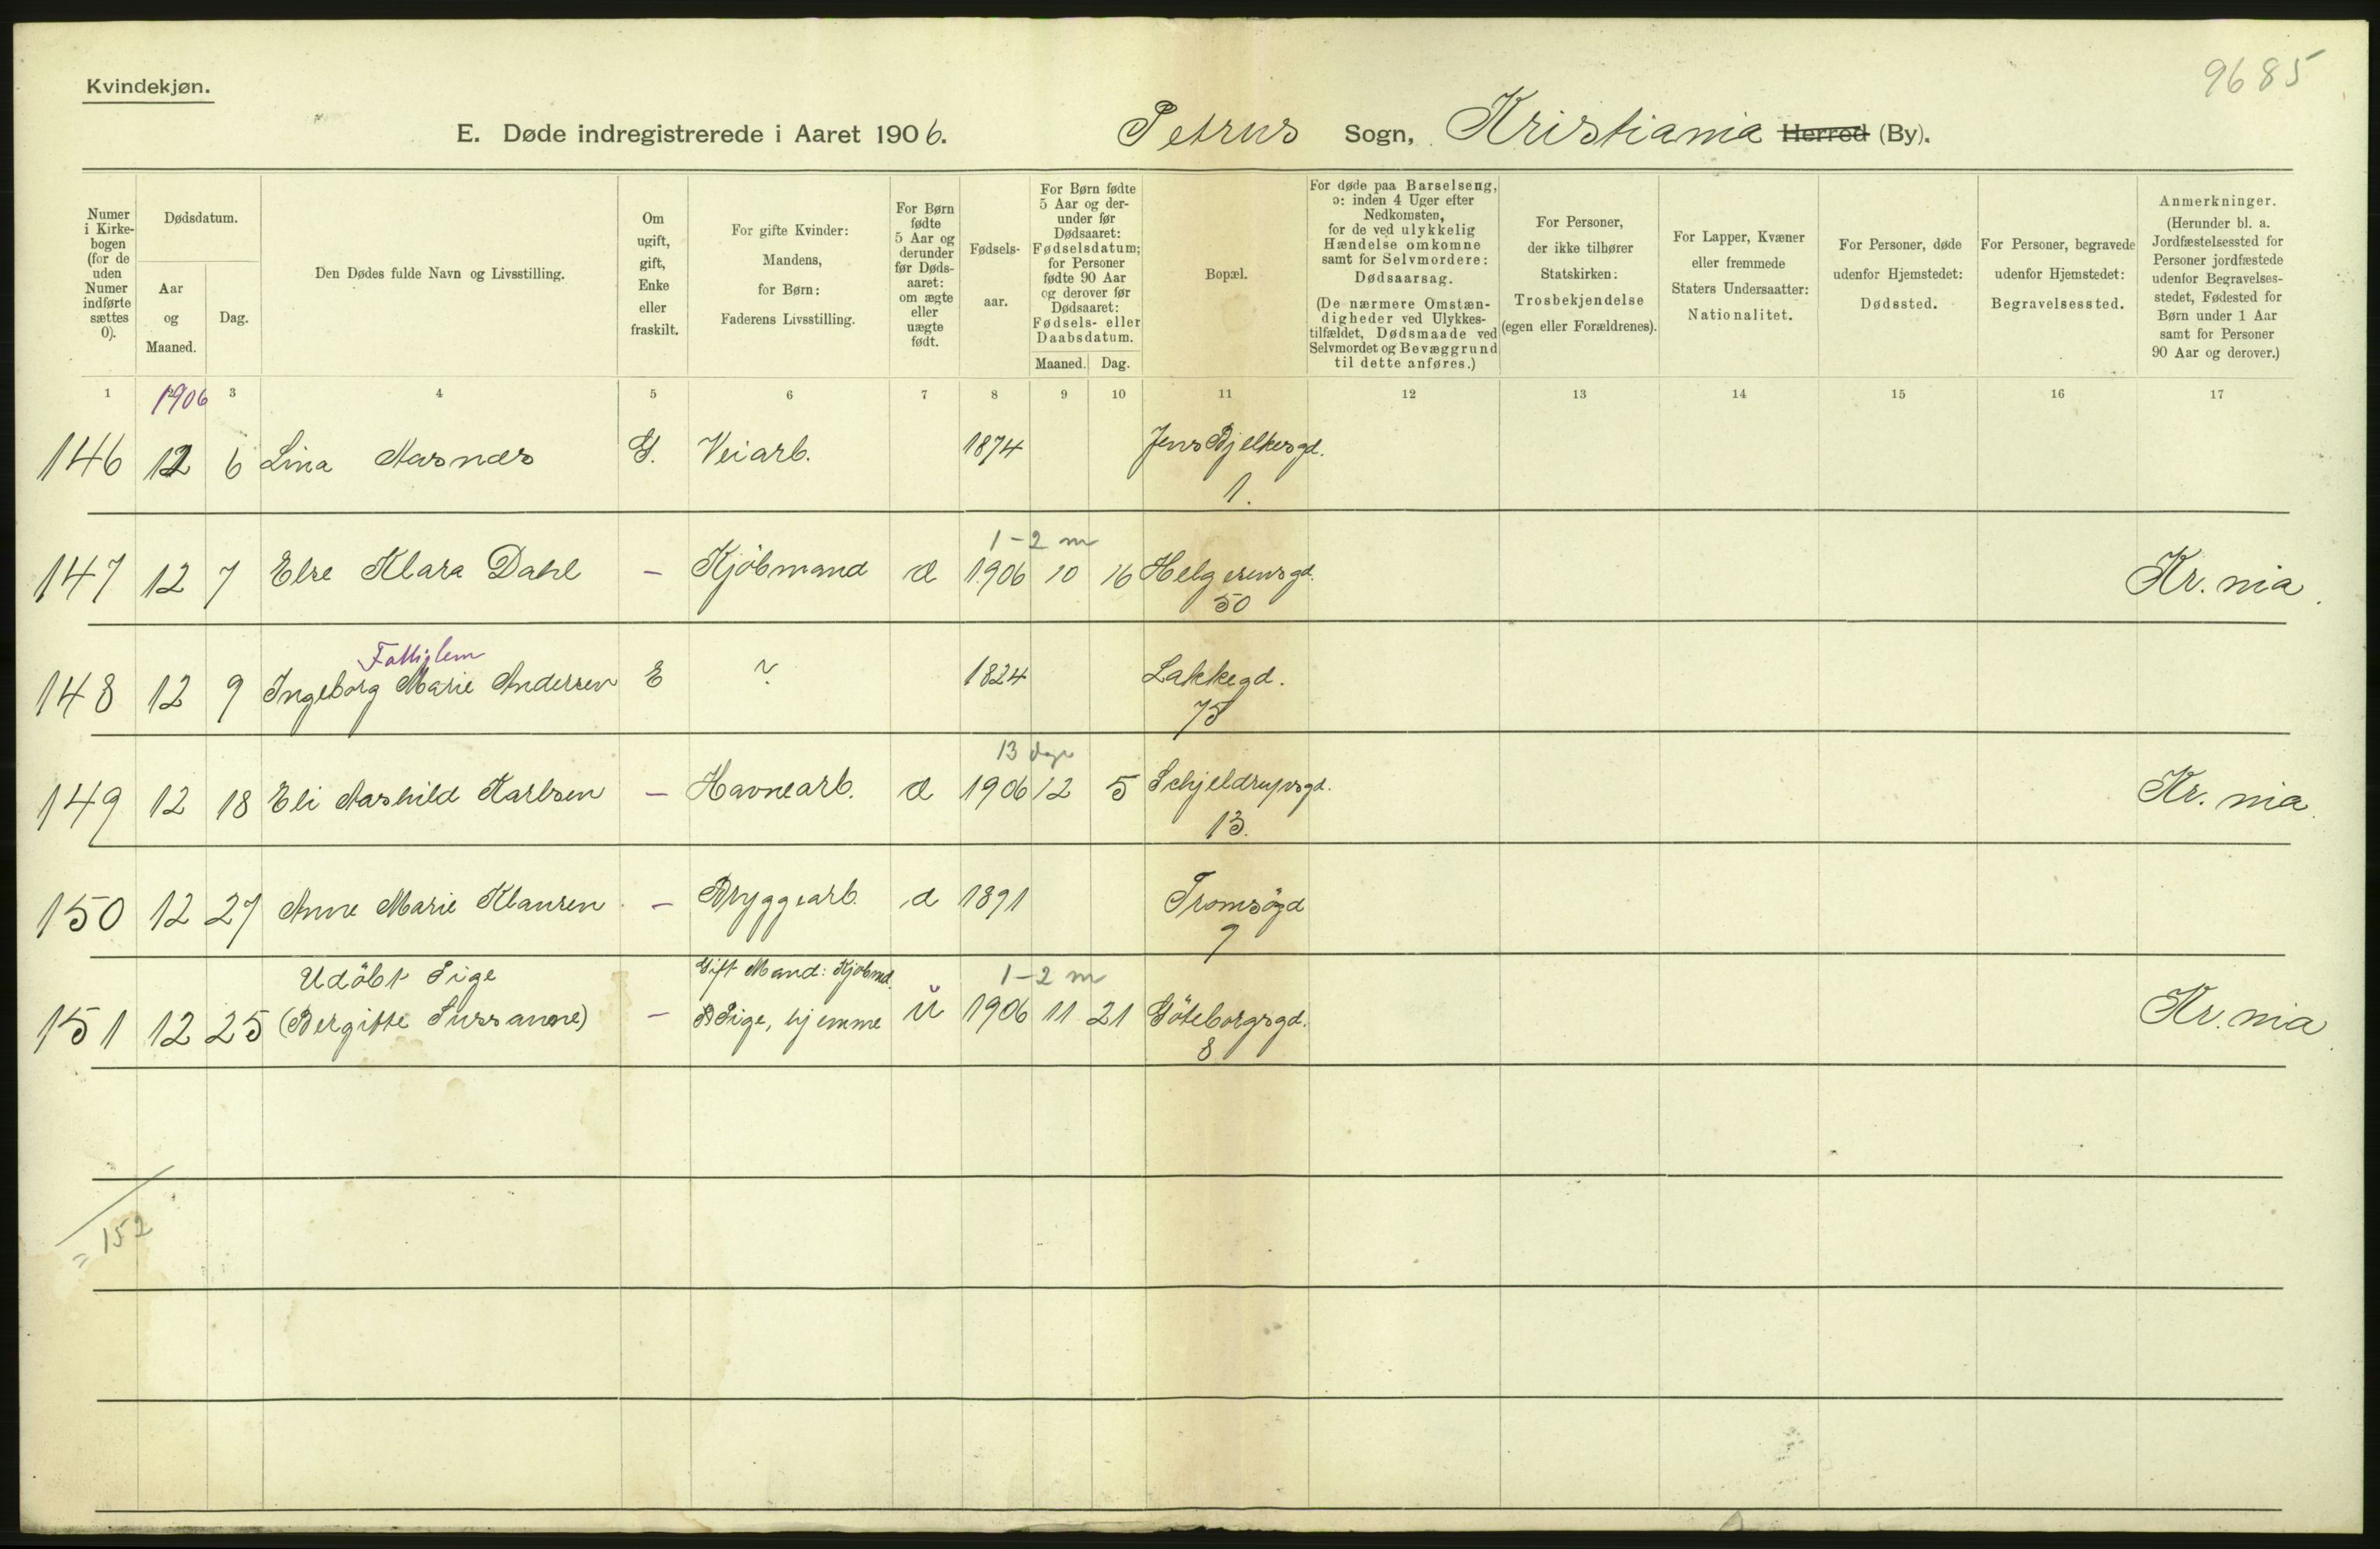 9685
Kvindekjøn.
E. Døde indregistrerede i Aaret 1906. Petrus Sogn, Kristiania Herred (By).
Numer i Kirke-bogen (for de uden Numer indførte sættes 0).
Dødsdatum.
Aar og Maaned.
Dag.
Den Dødes fulde Navn og Livsstilling.
Om ugift, gift, Enke eller fraskilt.
For gifte Kvinder: Mandens, for Børn: Faderens Livsstilling.
For Børn fødte 5 Aar og derunder før Døds-aaret: om ægte eller uægte født.
Fødsels-aar.
For Børn fødte 5 Aar og der-under før Dødsaaret: Fødselsdatum; for Personer fødte 90 Aar og derover før Dødsaaret: Fødsels- eller Daabsdatum.
Maaned. Dag.
Bopæl.
For døde paa Barselseng, ɔ: inden 4 Uger efter Nedkomsten, for de ved ulykkelig Hændelse omkomne samt for Selvmordere: Dødsaarsag. (De nærmere Omstæn-digheder ved Ulykkes-tilfældet, Dødsmaade ved Selvmordet og Bevæggrund til dette anføres.)
For Personer, der ikke tilhører Statskirken: Trosbekjendelse (egen eller Forældrenes).
For Lapper, Kvæner eller fremmede Staters Undersaatter: Nationalitet.
For Personer, døde udenfor Hjemstedet: Dødssted.
For Personer, begravede udenfor Hjemstedet: Begravelsessted.
Anmerkninger. (Herunder bl. a. Jordfæstelsessted for Personer jordfæstede udenfor Begravelses-stedet, Fødested for Børn under 1 Aar samt for Personer 90 Aar og derover.)
1 2 3 4 5 6 7 8 9 10 11 12 13 14 15 16 17
1906
146 12 6 Lina Aasnæs G. Veiarb. 1874 Jens Bjelkesgd.
1.
1-2 m
147 12 7 Else Klara Dahl - Kjöbmand d 1906 10 16 Helgesensgd. Kr.nia.
50
Fattiglem
148 12 9 Ingeborg Marie Andersen E ? 1824 Lakkegd.
75
13 dage
149 12 18 Eli Aashild Karlsen - Havnearb. d 1906 12 5 Schjeldrupsgd. Kr.nia.
13.
150 12 27 Anne Marie Klausen - Bryggearb. d 1891 Tromsögd
9
Udöbt Pige Gift Mand: Kjöbmd. 1-2 m
151 12 25 (Bergitte Sussanne) - Pige, hjemme u 1906 11 21 Göteborgsgd. Kr.nia.
8
= 152